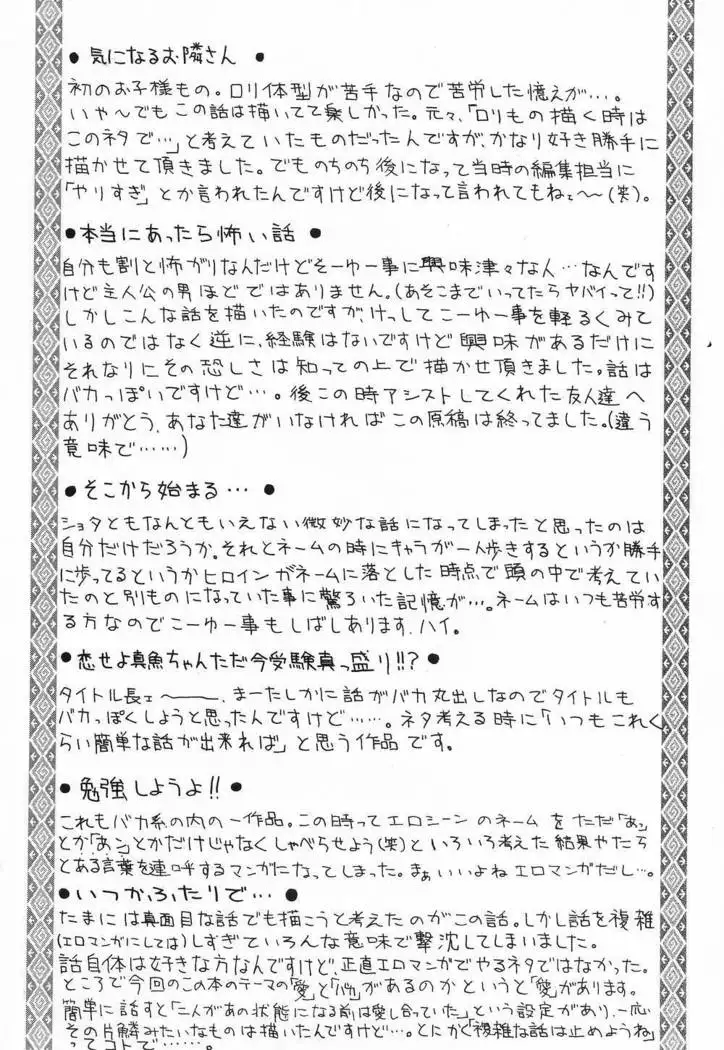 ● 気になるお隣さん ●
初のお子様もの。ロリ体型が苦手なので苦労した憶えが…。
いや〜でもこの話は描いてて楽しかった。元々、「ロリもの描く時は
このネタで…」と考えていたものだったんですが、かなり好き勝手に
描かせて頂きました。でものちのち後になって当時の編集担当に
「ヤリすぎ」とか言われたんですけど後になって言われてもねェ〜〜(笑)。
●本当にあったら怖い話 ●
自分も割と怖がりなんだけどそーゆー事に興味津々な人…なんです
けど主人公の男ほどではありません。(あそこまでいってたらヤバイって!!)
しかしこんな話を描いたのですが、けっしてこーゆー事を軽るくみて
いるのではなく逆に、経験はないですけど興味があるだけに
それなりにその恐しさは知っての上で描かせ頂きました。話は
バカっぽいですけど…。後この時アシストしてくれた友人達へ
ありがとう、あなた達がいなければこの原稿は終ってました。(違う
意味で……)
●そこから始まる… ●
ショタともなんともいえない微妙な話になってしまったと思ったのは
自分だけだろうか。それとネームの時にキャラが一人歩きするというか勝手
に歩ってるというかヒロインがネームに落とした時点で頭の中で考えてい
たのと別ものになっていた事に驚ろいた記憶が…。ネームはいつも苦労す
る方なのでこーゆー事もしばしあります、ハイ。
●恋せよ真魚ちゃんただ今受験真っ盛り!!?●
タイトル長ェ〜――、まーたしかに話がバカ丸出しなのでタイトルも
バカっぽくしようと思ったんですけど……。ネタ考える時に「いつもこれく
らい簡単な話が出来れば」と思う作品です。
● 勉強しようよ!! ●
これもバカ系の内の一作品。この時ってエロシーンのネームをただ「あっ」
とか「あン」とかだけじゃなくしゃべらせよう(笑)といろいろ考えた結果やたら
とある言葉を連呼するマンガになってしまった。まぁいいよねエロマンガだし…。
●いつかふたりで… ●
たまには真面目な話でも描こうと考えたのがこの話。しかし話を複雑
(エロマンガにしては)しすぎていろんな意味で撃沈してしまいました。
話自体は好きな方なんですけど、正直エロマンガでやるネタではなかった。
ところで今回のこの本のテーマの「愛」と「バカ」があるのかというと「愛」があります。
簡単に話すと「二人があの状態になる前は愛し合っていた」という設定があり、一応
その片鱗みたいなものは描いたんですけど…。とにかく「複雑な話は止めようね」
ってコトで……。